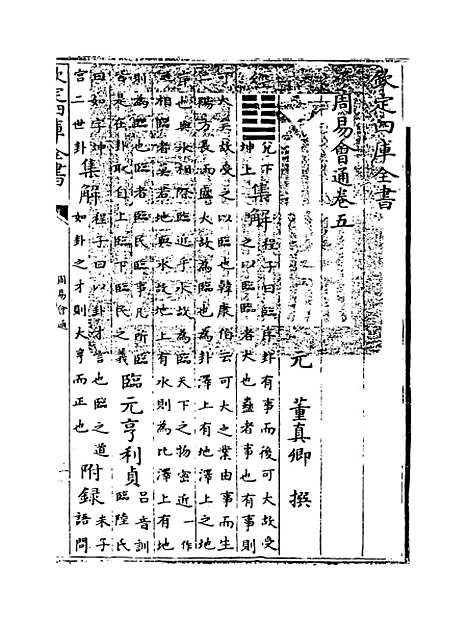 欽定四庫全書
周易會通卷五
元 董真卿 撰
兌下坤上 集解 程子曰臨序卦有事而後可大故受
之以臨臨者大也蠱者事也有事則
可大矣故受之以臨也韓康伯云可大之業由事而生
二陽方長而盛大故為臨也為卦澤上有地澤上之地
岸也與水相際臨近乎水故為臨天下之物密近一作
近相臨者莫若地與水故地上有水則為比澤上有地
則為臨也臨者臨民臨事凡所臨
皆是在卦取自上臨下臨民之義 臨元亨利貞 吕音訓
臨陸氏
曰如字坤
宫二世卦 集解 程子曰以卦才言也臨之道
如卦之才則大亨而正也 附録 朱子
語問
欽定四庫全書
周易會通
一